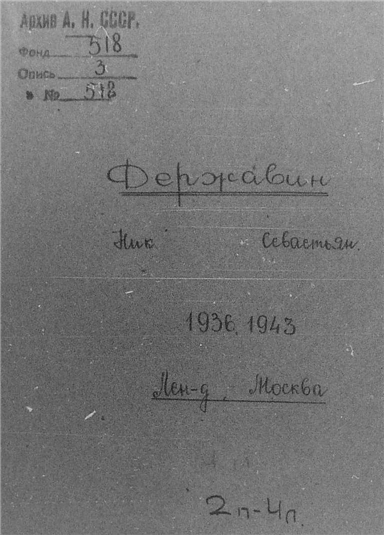 Архив А. Н. СССР.
Фонд 518
Опись 3
" № 512
Державин
Ник Севастьян.
1936, 1943
Лен-д, Москва
2п-4л.